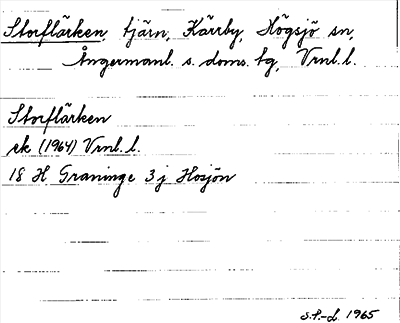 Storflärken, tjärn, Kärrby, Högsjö sn,
Ångermanl. s. doms. tg, Vrnl. l.
Storflärken
ek (1964) Vrnl. l.
18 H Graninge 3 j Hosjön
S.F.-L. 1965